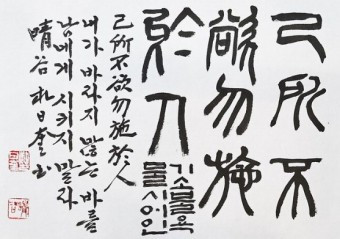 己所不
欲勿施
於人
기소불욕
물시어인
己所不欲勿施於人
내가 바라지 않는 바를
남에게 시키지 말라
晴谷